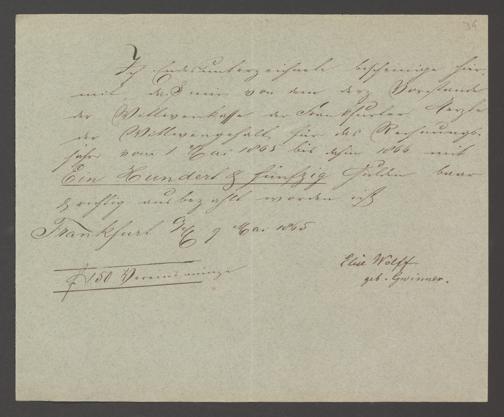 34
Ich Endesunterzeichnete bescheinige hier-
mit daß mir von dem derz Vorstande
der Wittwenkasse der Frankfurter Aerzte
der Wittwengehalt für das Rechnungs-
jahr vom 1 Mai 1865 bis dahin 1866 mit
Ein Hundert & fünfzig Gulden baar
& richtig ausbezahlt worden ist
Frankfurt a/M 9 Mai 1865
Elise Wolff
geb. Gwinner.
f 150 Vereinsmünze